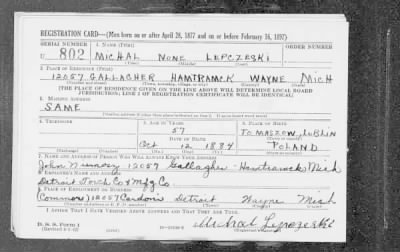 REGISTRATION CARD—(Men born on or after April 28, 1877 and on or before February 16, 1897)
SERIAL NUMBER 1. NAME (Print)
U 802 MICHAL NONE LEPCZESKI
2. PLACE OF RESIDENCE (Print)
12057 GALLAGHER HAMTRAMCK WAYNE MICH
(THE PLACE OF RESIDENCE GIVEN ON THE LINE ABOVE WILL DETERMINE LOCAL BOARD
JURISDICTION; LINE 2 OF REGISTRATION CERTIFICATE WILL BE IDENTICAL)
3. MAILING ADDRESS
SAME
4. TELEPHONE 5. AGE IN YEARS 6. PLACE OF BIRTH
57 TOMASZOW LUBLIN
DATE OF BIRTH
Oct 12 1884 POLAND
7. NAME AND ADDRESS OF PERSON WHO WILL ALWAYS KNOW YOUR ADDRESS
John 12057 Gallagher - Hamtramck Mich
8. EMPLOYER'S NAME AND ADDRESS
Detroit Torch Co & Mfg Co.
9. PLACE OF EMPLOYMENT OR BUSINESS
Detroit Wayne Mich
I AFFIRM THAT I HAVE VERIFIED ABOVE ANSWERS AND THAT THEY ARE TRUE.
D. S. S. Form 1
Michael